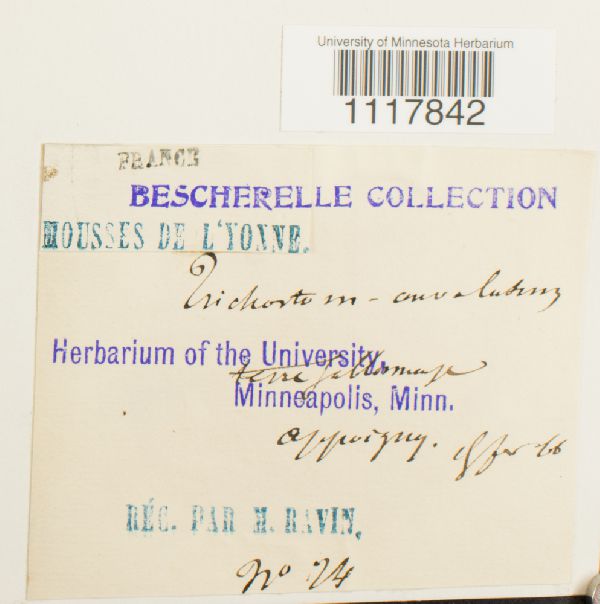 University of Minnesota Herbarium
1117842
FRANCE
BESCHERELLE COLLECTION
MOUSSES DE L'YONNE.
Trichostom-
Herbarium of the University,
terre
Minneapolis, Minn.
appoigny.
RÉC. PAR M. RAVIN,
No 24